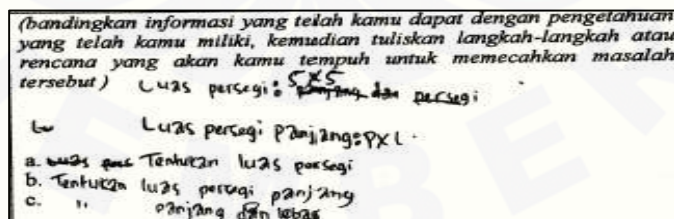 (bandingkan informasi yang telah kamu dapat dengan pengetahuan
yang telah kamu miliki, kemudian tuliskan langkah-langkah atau
rencana yang akan kamu tempuh untuk memecahkan masalah
tersebut) Luas persegi: S×S persegi
Luas persegi panjang: P×L.
a. Tentukan luas persegi
b. Tentukan luas persegi panjang
c. " panjang dan lebar